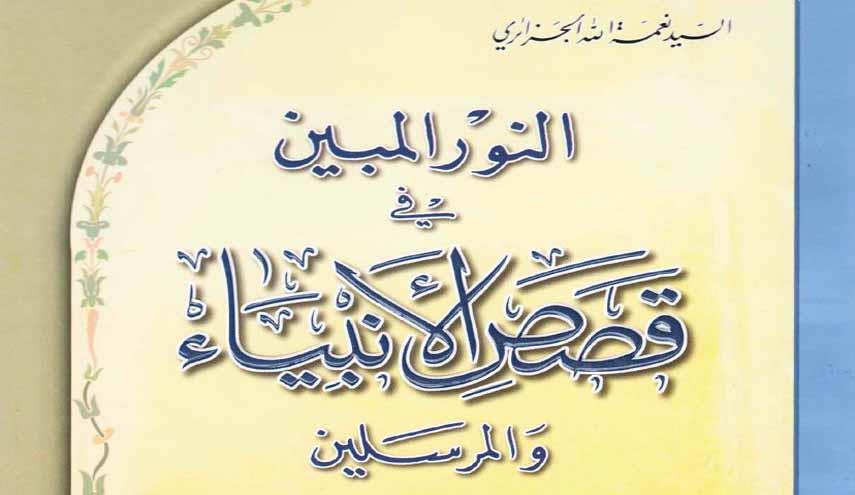 السيد نعمة الله الجزائري
النور المبين
في
قصص الأنبياء
والمرسلين